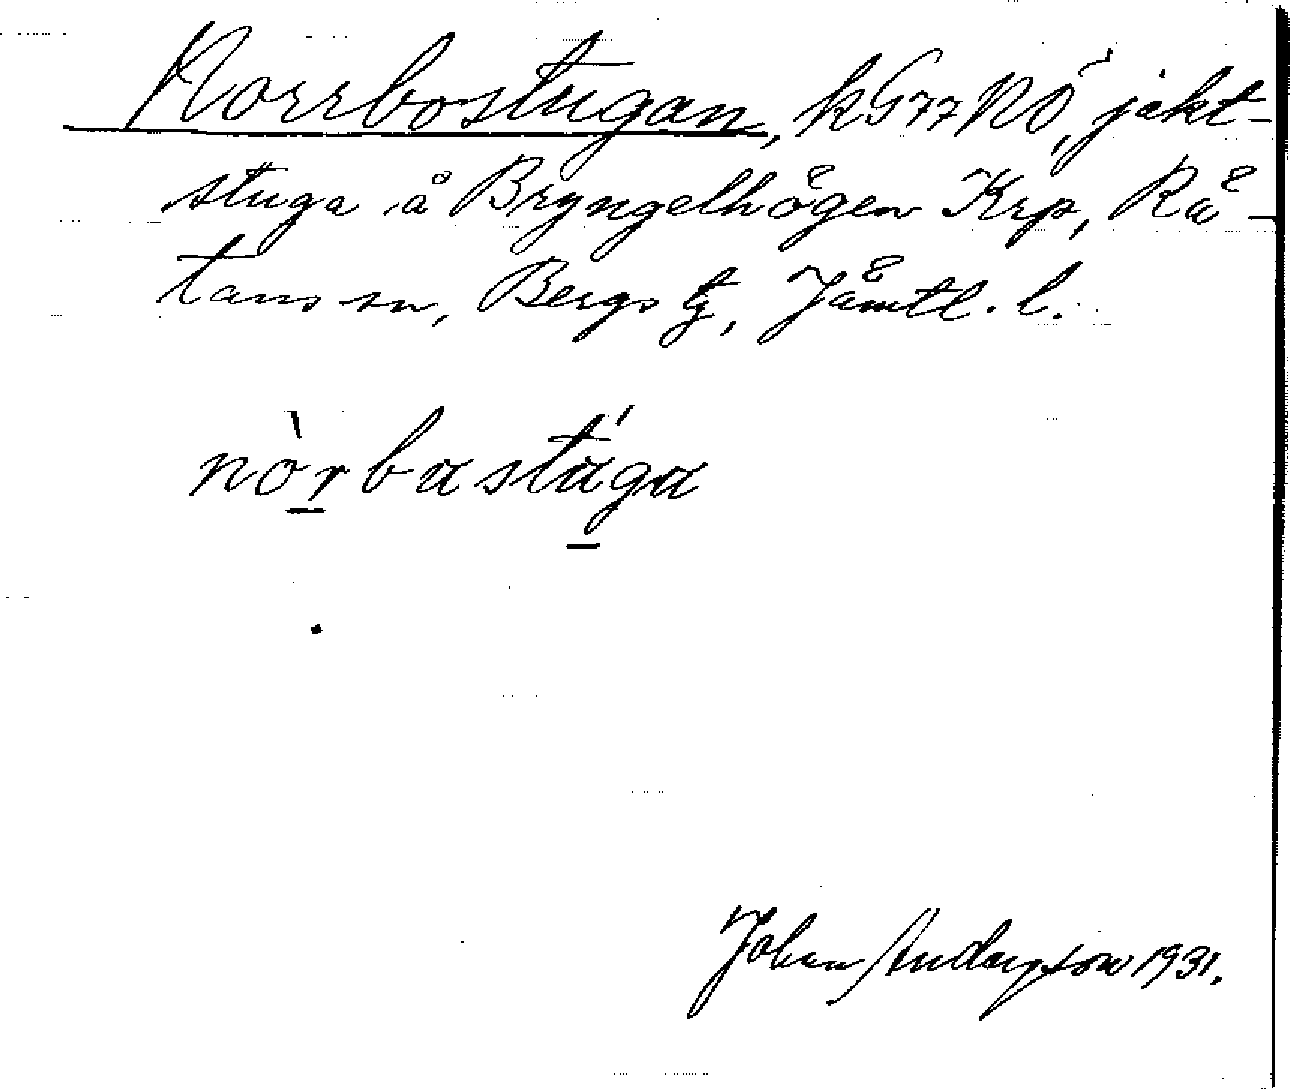 Norrbostugan, kG77NÖ, jakt-
stuga å Bryngelhögen Krp, Rä-
tans sn, Bergs tg, Jämtl. l.
nòrbastúga
Johan Anderson 1931.